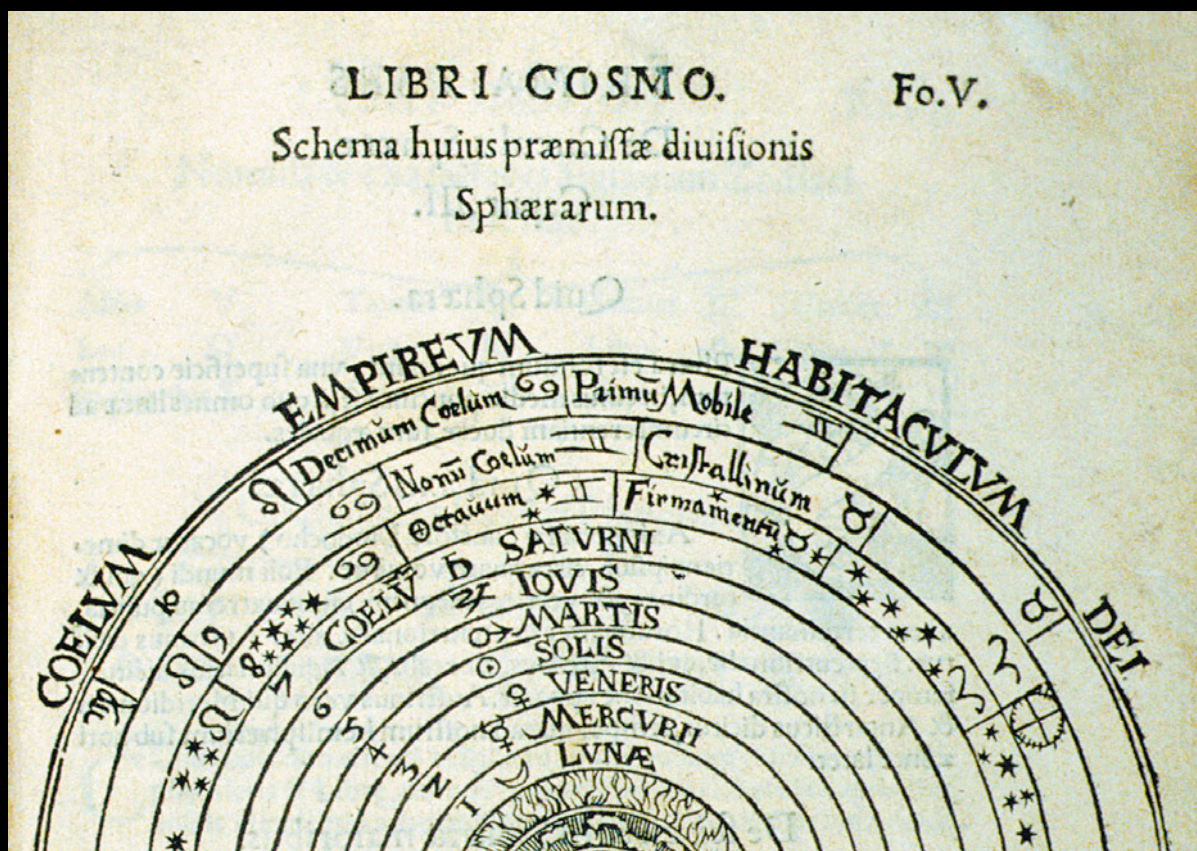 LIBRI COSMO. Fo.V.
Schema huius præmiſſæ diuiſionis
Sphærarum.
COELVM EMPIREVM HABITACVLVM DEI
10 Decimum Coelum ♋ Primũ Mobile ♊
9 Nonũ Coelum ♊ Criſtallinum ♉
8 Octauum ♊ Firmamentũ ♉
7 COELV ♄ SATVRNI
6 ♃ IOVIS
5 ♂ MARTIS
4 ☉ SOLIS
3 ♀ VENERIS
2 ☿ MERCVRII
1 ☽ LVNÆ